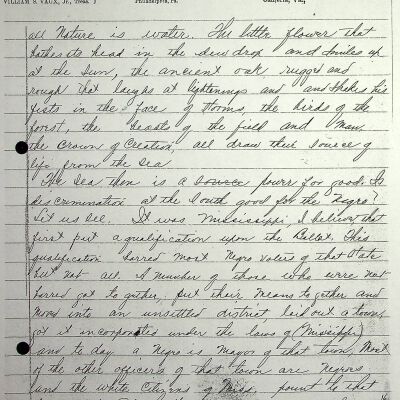 WILLIAM S. VAUX, JR., TREAS.
PHILADELPHIA, PA.
all Nature is water. The little flower that
bathes its head in the dew drop and smiles up
at the Sun, the ancient oak rugged and
rough that laughs at lightenings and and shakes his
fists in the face of storms, the birds of the
forest, the beasts of the field and man,
the Crown of Creation, all draw their source of
life from the Sea
The Sea then is a source power for good. Is
discrimination at the South good for the Negro?
Let us see. It was Mississippi, I believe that
first put a qualification upon the Ballot. This
qualification barred most Negro voters of that State
but not all. A number of those who were not
barred got to gether, put their means to gether and
moved into an unsettled district laid out a town,
got it incorporated under the laws of (Mississippi)
and to day a Negro is Mayor of that town, Most
of the other officers of that town are Negroes
and the white Citizens of Miss. point to that